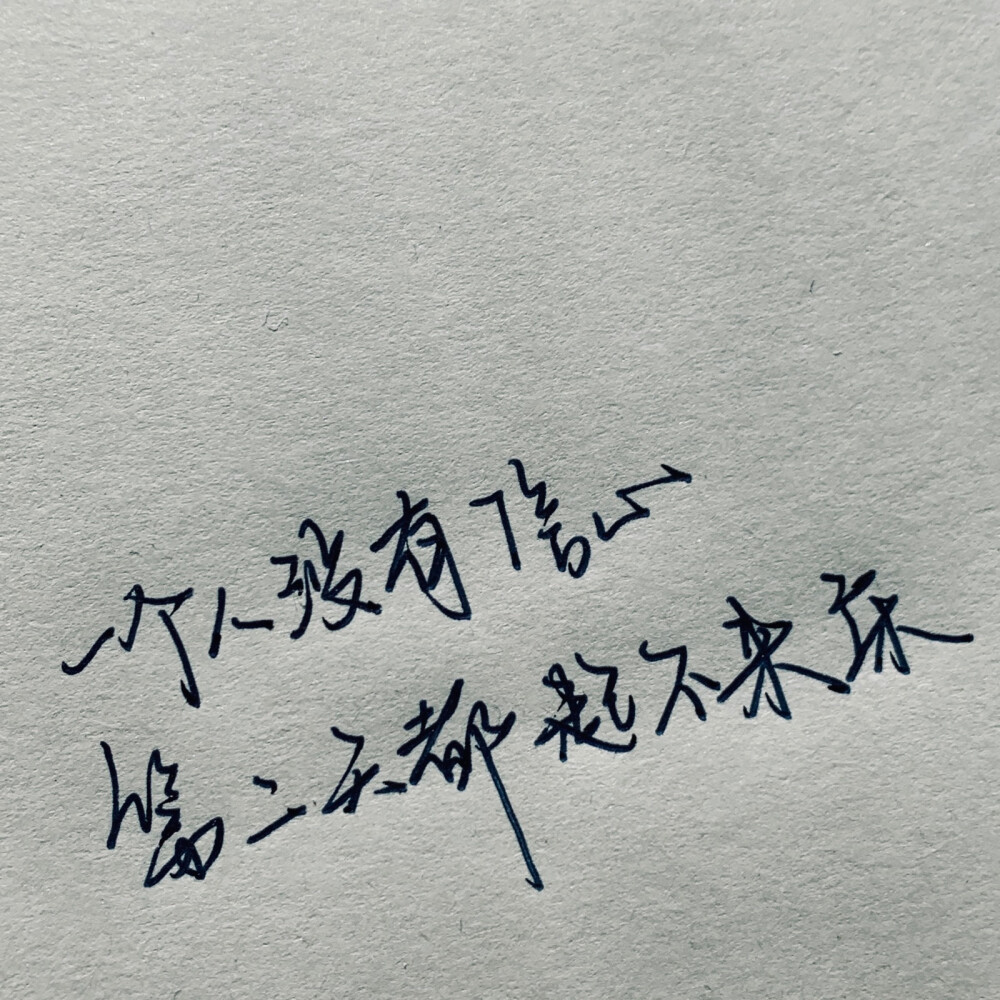 一个人没有信心
第二天都起不来床